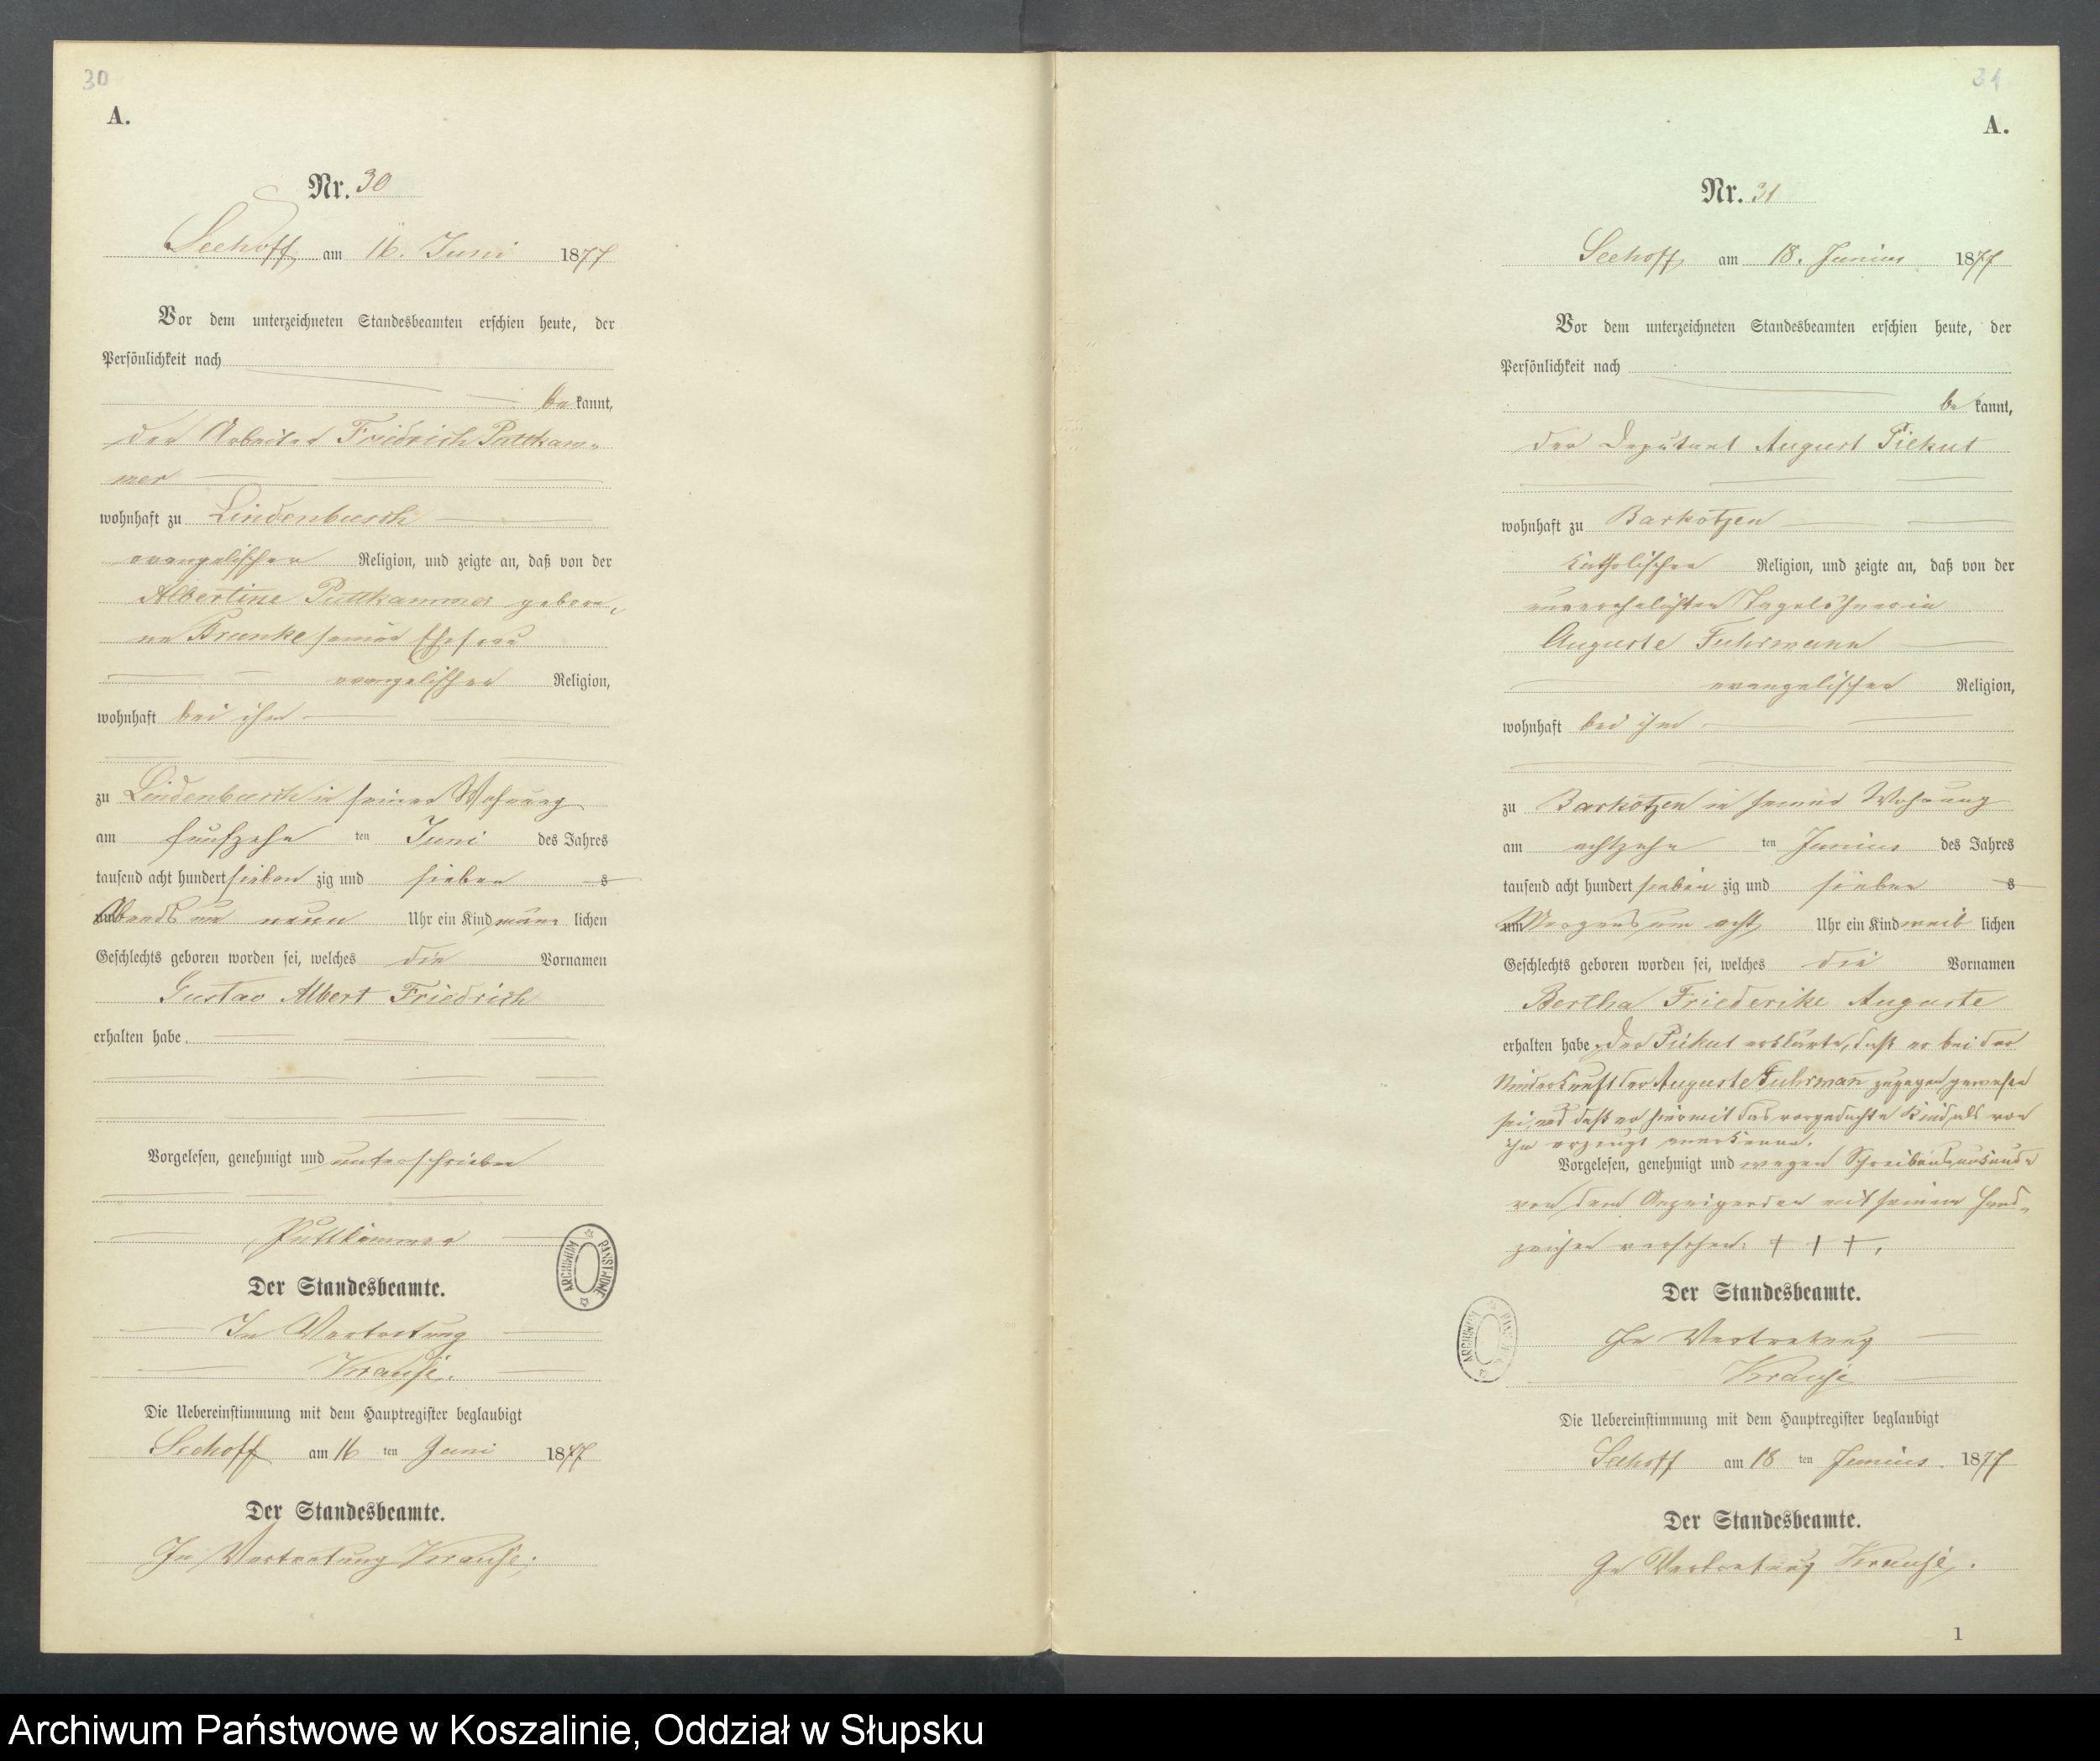 30
A.
Nr. 30
Seehoff am 16. Juni 1877
Vor dem unterzeichneten Standesbeamten erschien heute, der
Persönlichkeit nach
be kannt,
der Arbeiter Friedrich Puttkam-
mer
wohnhaft zu Lindenbusch
evangelischer Religion, und zeigte an, daß von der
Albertine Puttkammer gebore-
ne Brunke seiner Ehefrau
evangelischer Religion,
wohnhaft bei ihm
zu Lindenbusch in seiner Wohnung
am fünfzehn ten Juni des Jahres
tausend acht hundert sieben zig und sieben s
Abends um neun Uhr ein Kind männ lichen
Geschlechts geboren worden sei, welches die Vornamen
Gustav Albert Friedrich
erhalten habe.
Vorgelesen, genehmigt und unterschrieben
Puttkammer
ARCHIWUM PAŃSTWOWE
Der Standesbeamte.
In Vertretung
Krause.
Die Uebereinstimmung mit dem Hauptregister beglaubigt
Seehoff am 16 ten Juni 1877
Der Standesbeamte.
In Vertretung Krause.
31
A.
Nr. 31
Seehoff, am 18. Junius 1877
Vor dem unterzeichneten Standesbeamten erschien heute, der
Persönlichkeit nach
be kannt,
der Deputant August Piekut
wohnhaft zu Barkotzen
katholischer Religion, und zeigte an, daß von der
unverehelichten Tagelöhnerin
Auguste Fuhrmann
evangelischer Religion,
wohnhaft bei ihm
zu Barkotzen in seiner Wohnung
am achtzehn ten Junius des Jahres
tausend acht hundert sieben zig und sieben s
um Morgens um acht Uhr ein Kind weib lichen
Geschlechts geboren worden sei, welches die Vornamen
Bertha Friederike Auguste
erhalten habe. Der Piekut erklärte, daß er bei der
Niederkunft der Auguste Fuhrmann zugegen gewesen
sei, und daß er hiermit das vorgedachte Kind als von
ihm erzeugt anerkenne.
Vorgelesen, genehmigt und wegen Schreibensunkunde
von dem Anzeigenden mit seinem Hand-
zeichen versehen: + + +.
ARCHIWUM
Der Standesbeamte.
In Vertretung
Krause
Die Uebereinstimmung mit dem Hauptregister beglaubigt
Seehoff am 18 ten Junius. 1877
Der Standesbeamte.
In Vertretung Krause.
1
Archiwum Państwowe w Koszalinie, Oddział w Słupsku